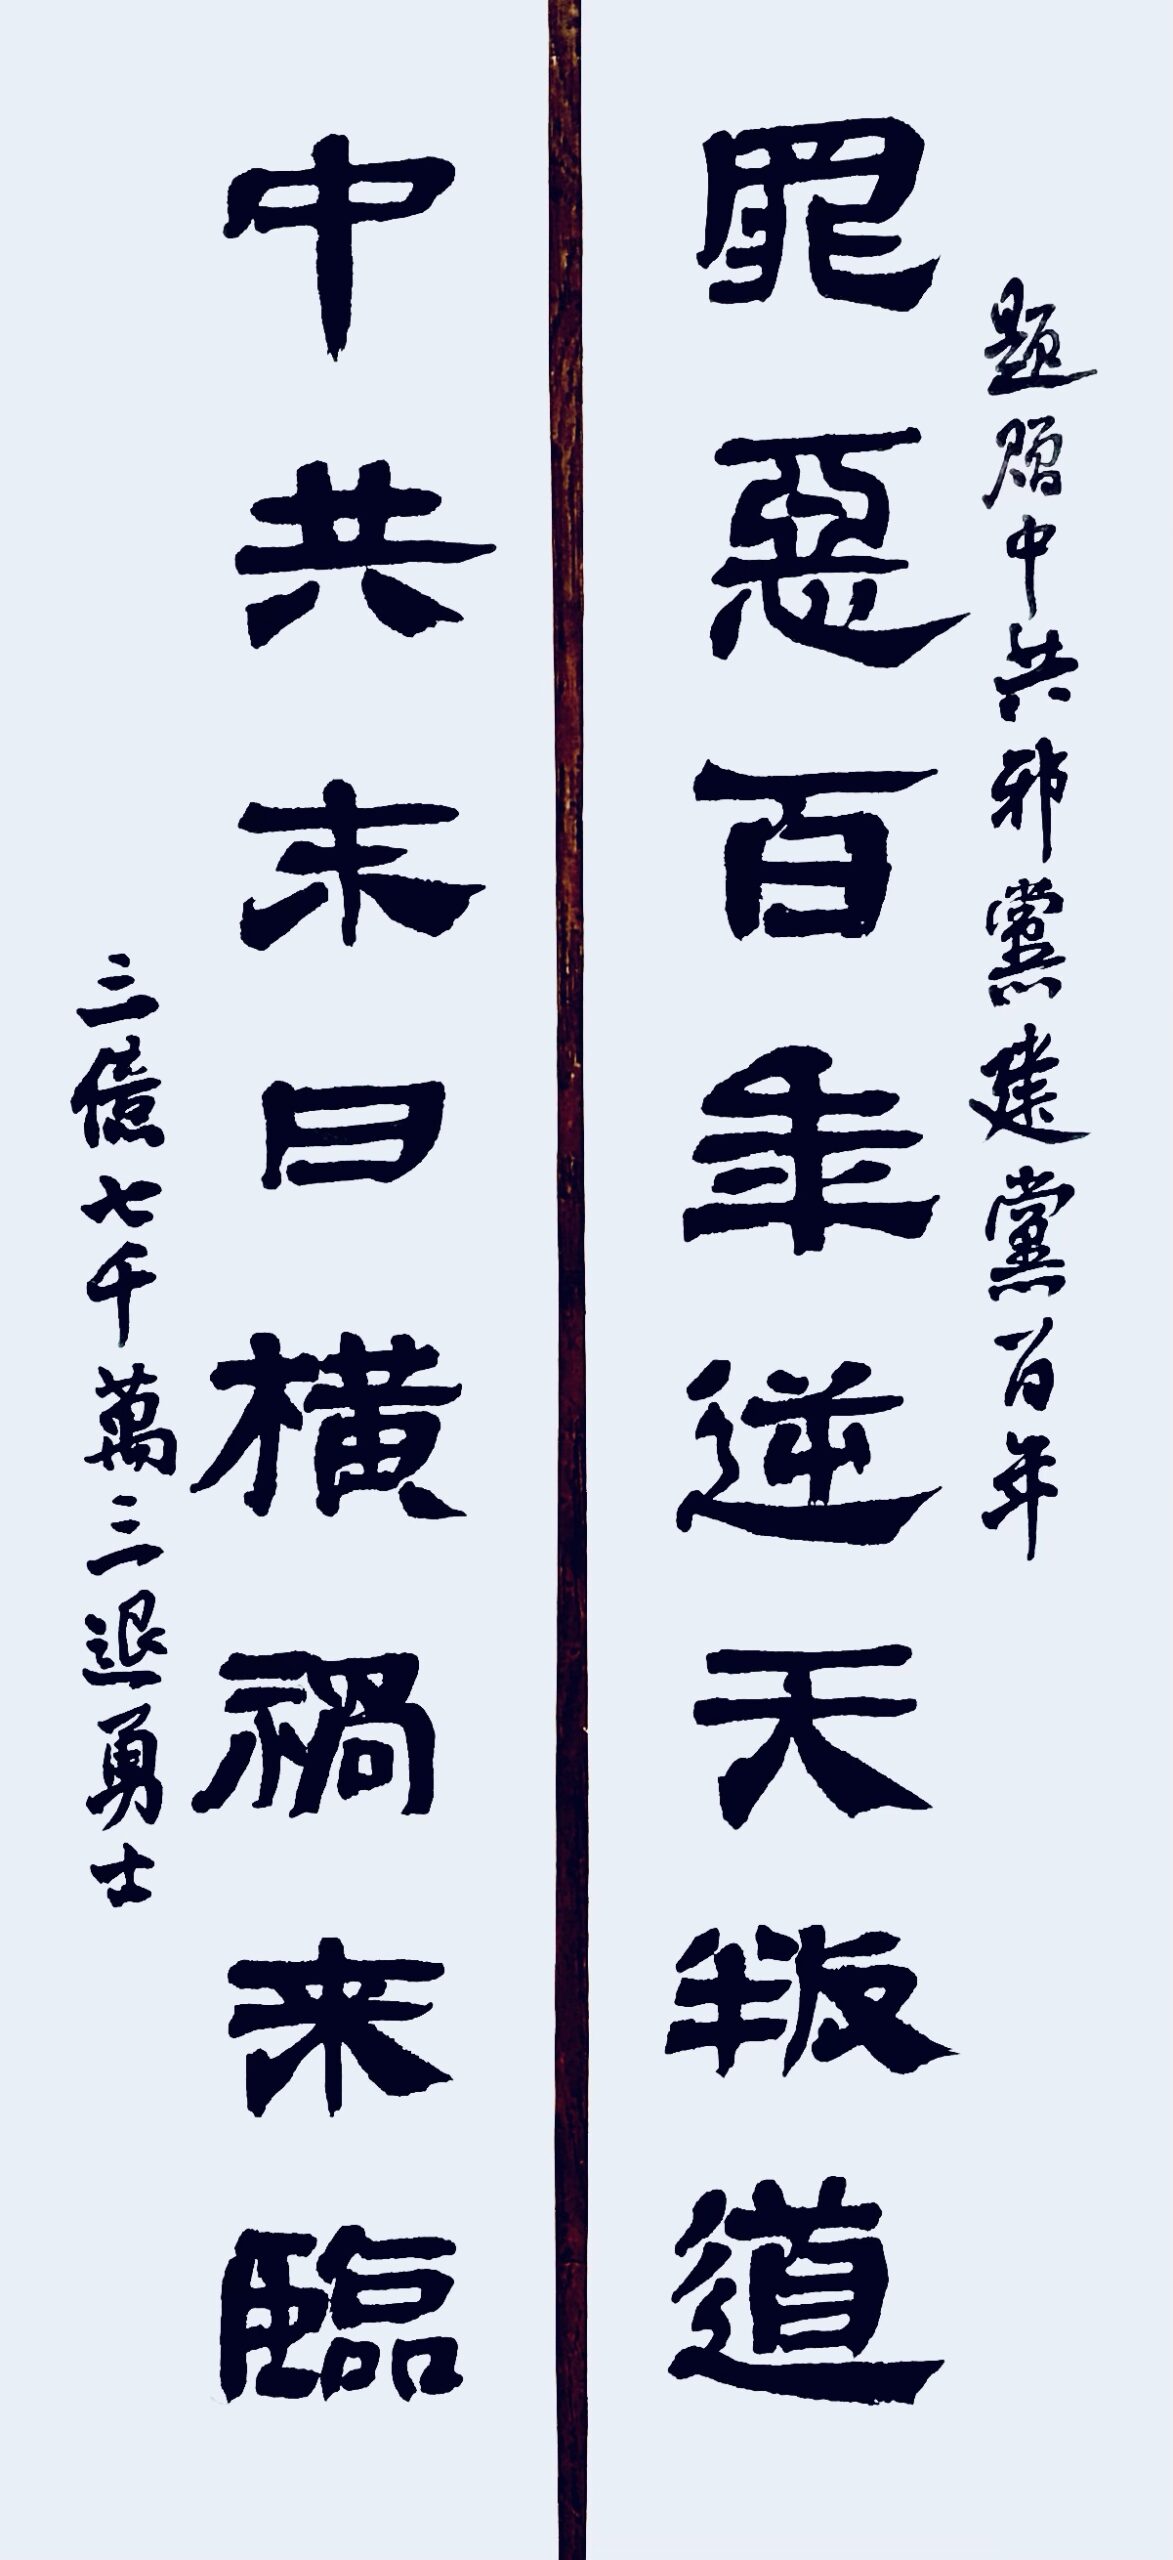 題贈中共邪黨建黨百年
罪惡百年逆天叛道
中共末日橫禍来臨
三億七千萬三退勇士